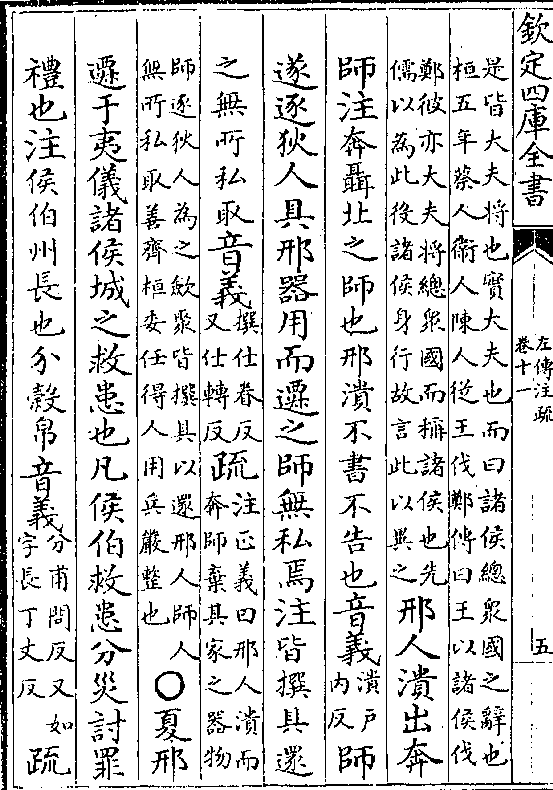 欽定四庫全書
左傳注疏
卷十一
五
是皆大夫將也實大夫也而曰諸侯總衆國之辭也
桓五年蔡人衞人陳人從王伐鄭傳曰王以諸侯伐
鄭彼亦大夫將總衆國而稱諸侯也先
儒以為此役諸侯身行故言此以異之
邢人潰出奔
師注奔聶北之師也邢潰不書不告也音義
潰戶
内反
師
遂逐狄人具邢器用而遷之師無私焉注皆撰具還
之無所私取音義
撰仕眷反
又仕轉反
疏
注正義曰邢人潰而
奔師棄其家之器物
師逐狄人為之斂聚皆撰具以還邢人師人
無所私取善齊桓委任得人用兵嚴整也
○夏邢
遷于夷儀諸侯城之救患也凡侯伯救患分災討罪
禮也注侯伯州長也分穀帛音義
分甫問反又如
字長丁丈反
疏